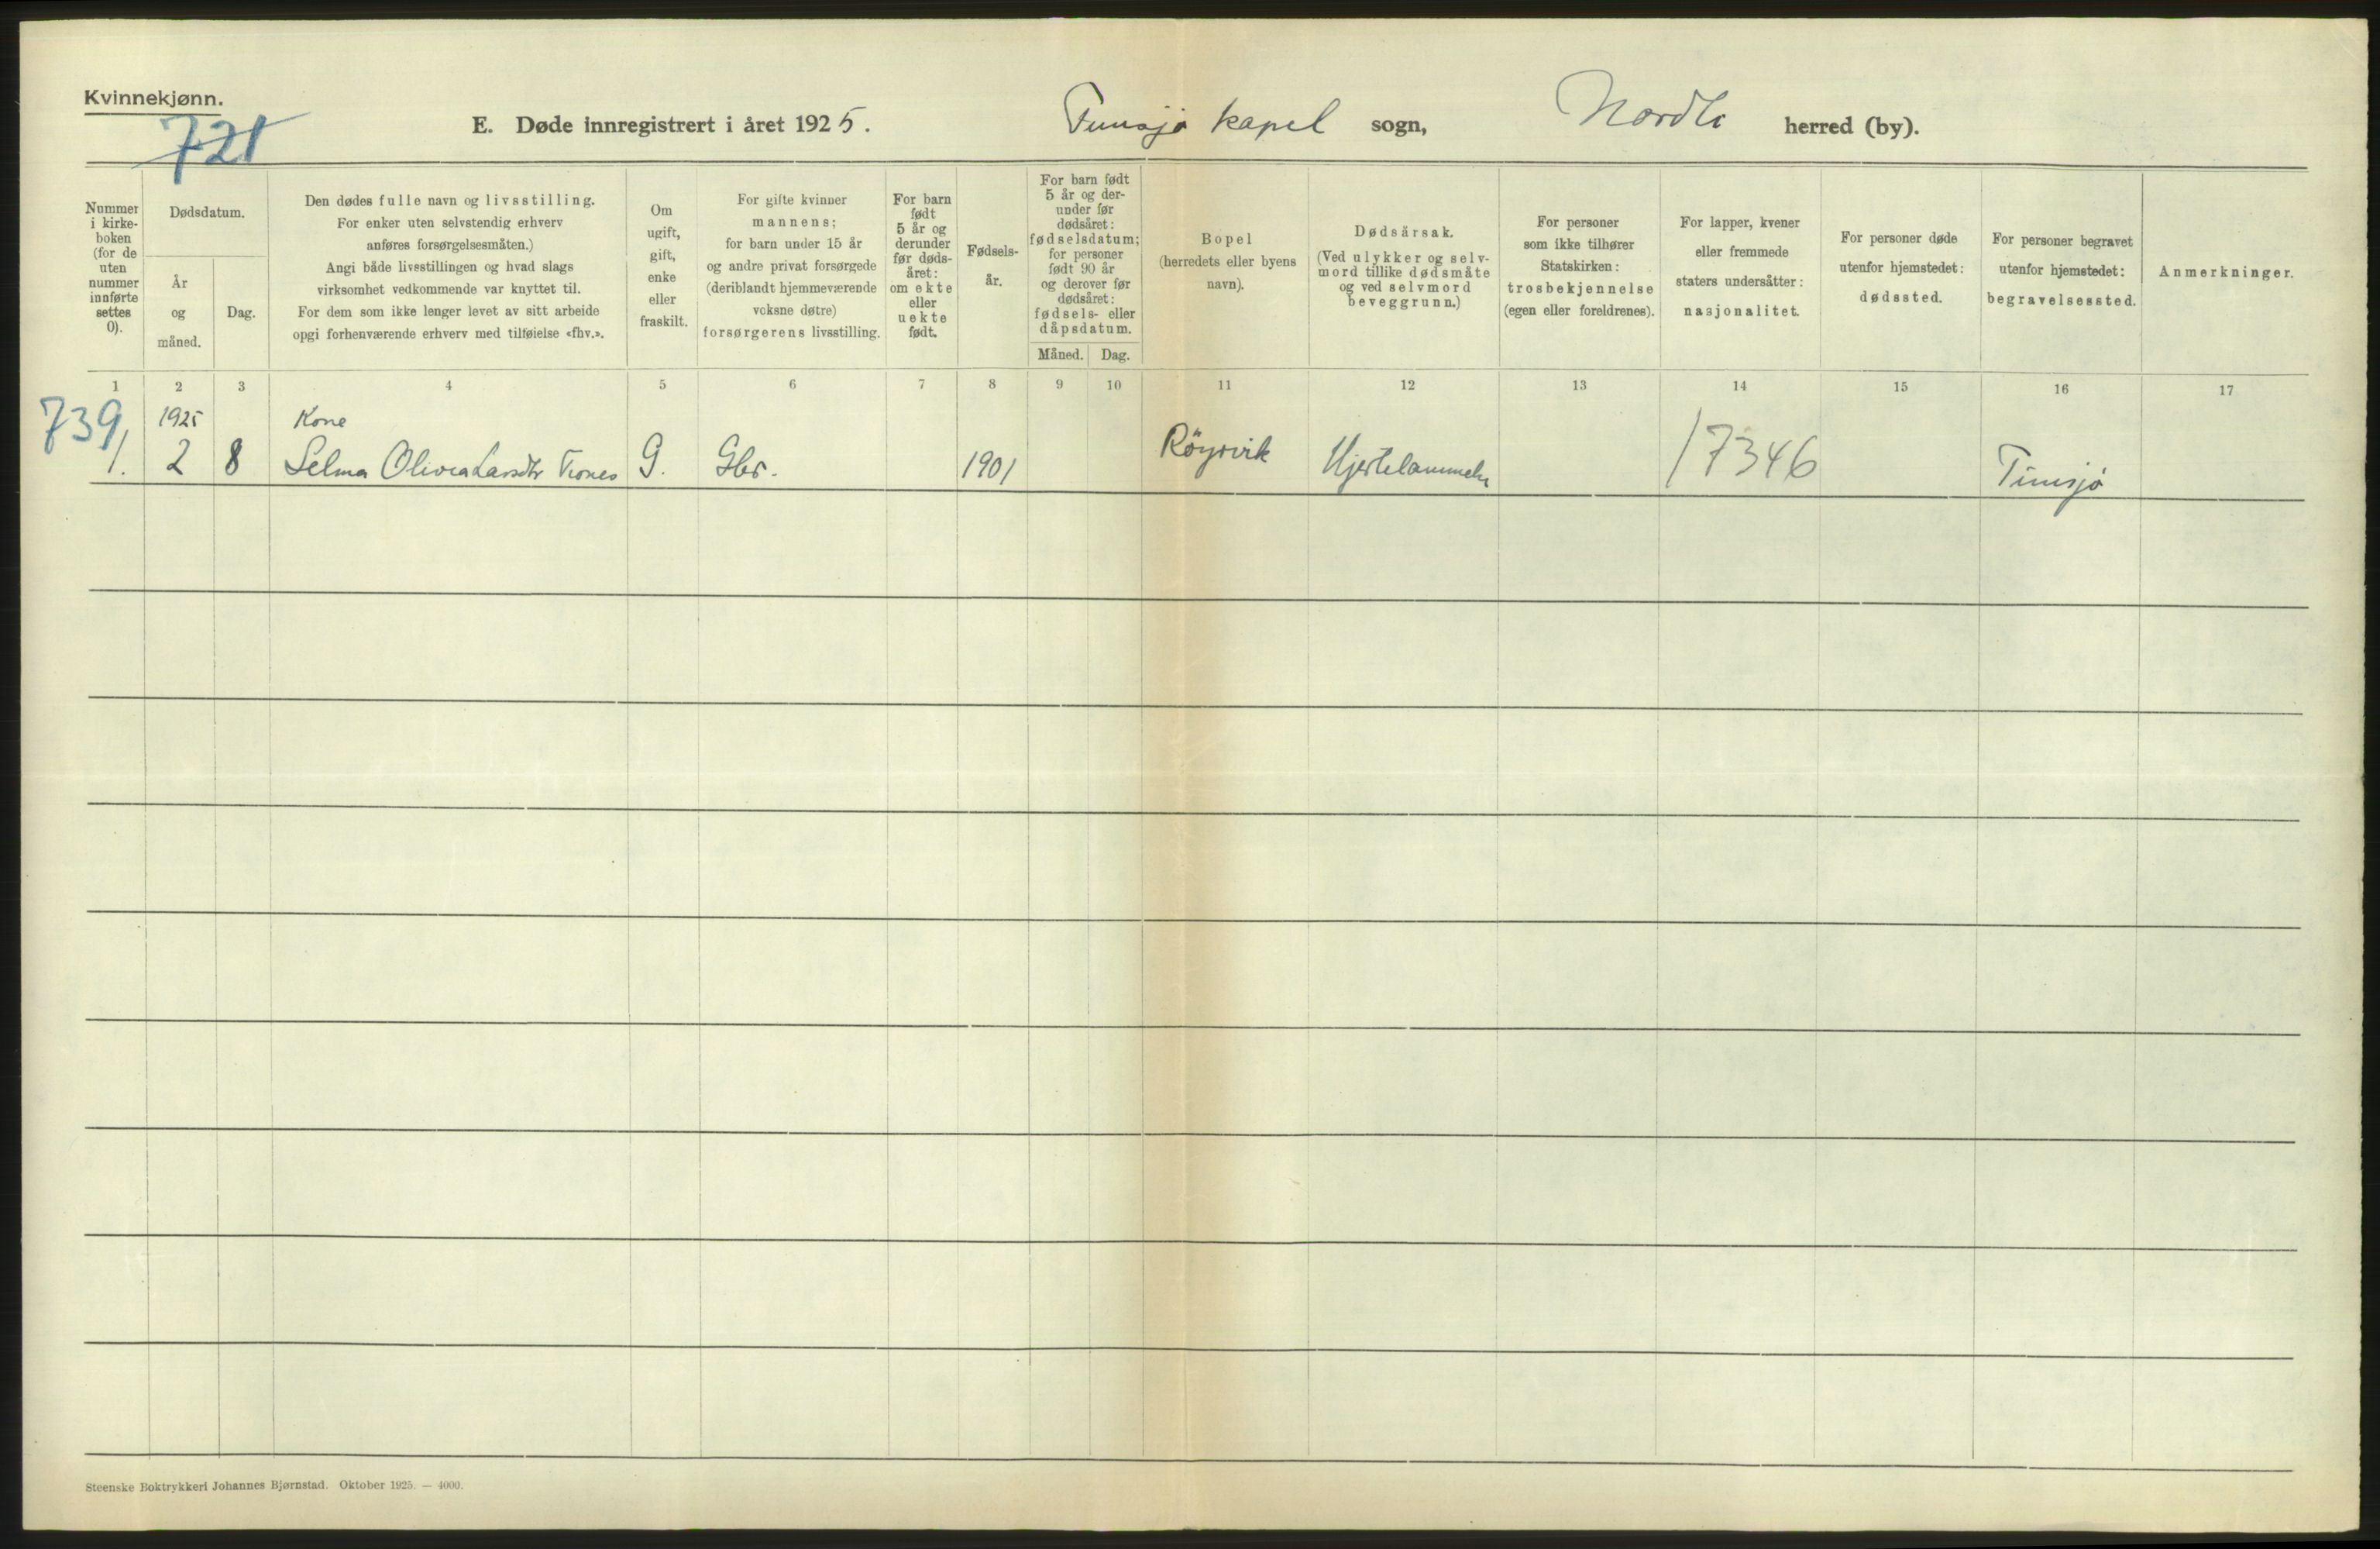 Kvinnekjønn.
721
E. Døde innregistrert i året 1925. Tunsjø kapel sogn, Nordli herred (by).
Nummer i kirke- boken (for de uten nummer innførte settes 0).
Dødsdatum.
År og måned.
Dag.
Den dødes fulle navn og livsstilling.
For enker uten selvstendig erhverv
anføres forsørgelsesmåten.)
Angi både livsstillingen og hvad slags
virksomhet vedkommende var knyttet til.
For dem som ikke lenger levet av sitt arbeide
opgi forhenværende erhverv med tilføielse «fhv.».
Om
ugift,
gift,
enke
eller
fraskilt.
For gifte kvinner
mannens;
for barn under 15 år
og andre privat forsørgede
(deriblandt hjemmeværende
voksne døtre)
forsørgerens livsstilling.
For barn
født
5 år og
derunder
før døds-
året:
om ekte
eller
uekte
født.
Fødsels-
år.
For barn født
5 år og der-
under før
dødsåret:
fødselsdatum;
for personer
født 90 år
og derover før
dødsåret:
fødsels- eller
dåpsdatum.
Måned. Dag.
Bopel
(herredets eller byens
navn).
Dødsårsak.
(Ved ulykker og selv-
mord tillike dødsmåte
og ved selvmord
beveggrunn.)
For personer
som ikke tilhører
Statskirken:
trosbekjennelse
(egen eller foreldrenes).
For lapper, kvener
eller fremmede
staters undersåtter:
nasjonalitet.
For personer døde
utenfor hjemstedet:
dødssted.
For personer begravet
utenfor hjemstedet:
begravelsessted.
Anmerkninger.
1 2 3 4 5 6 7 8 9 10 11 12 13 14 15 16 17
739 1925 Kone
1. 2 8 Selma Olivia Larsdtr Trones G. Gbr. 1901 Röyrvik Hjertelammelse 17346 Tunsjø
Steenske Boktrykkeri Johannes Bjørnstad. Oktober 1925. — 4000.